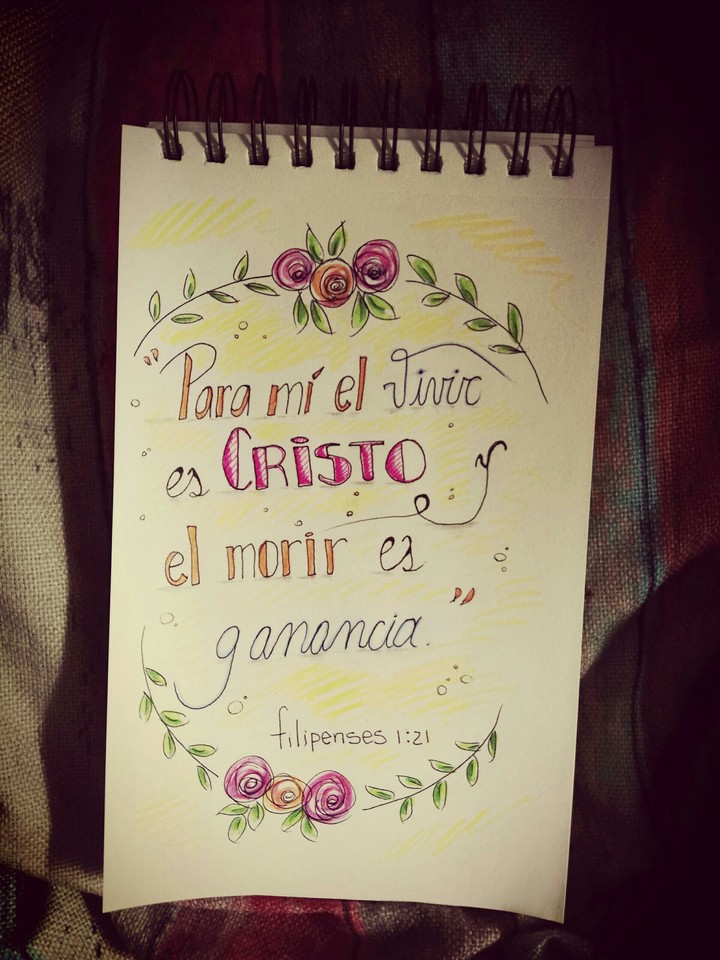 "Para mí el vivir
es CRISTO y
el morir es
ganancia."
filipenses 1:21